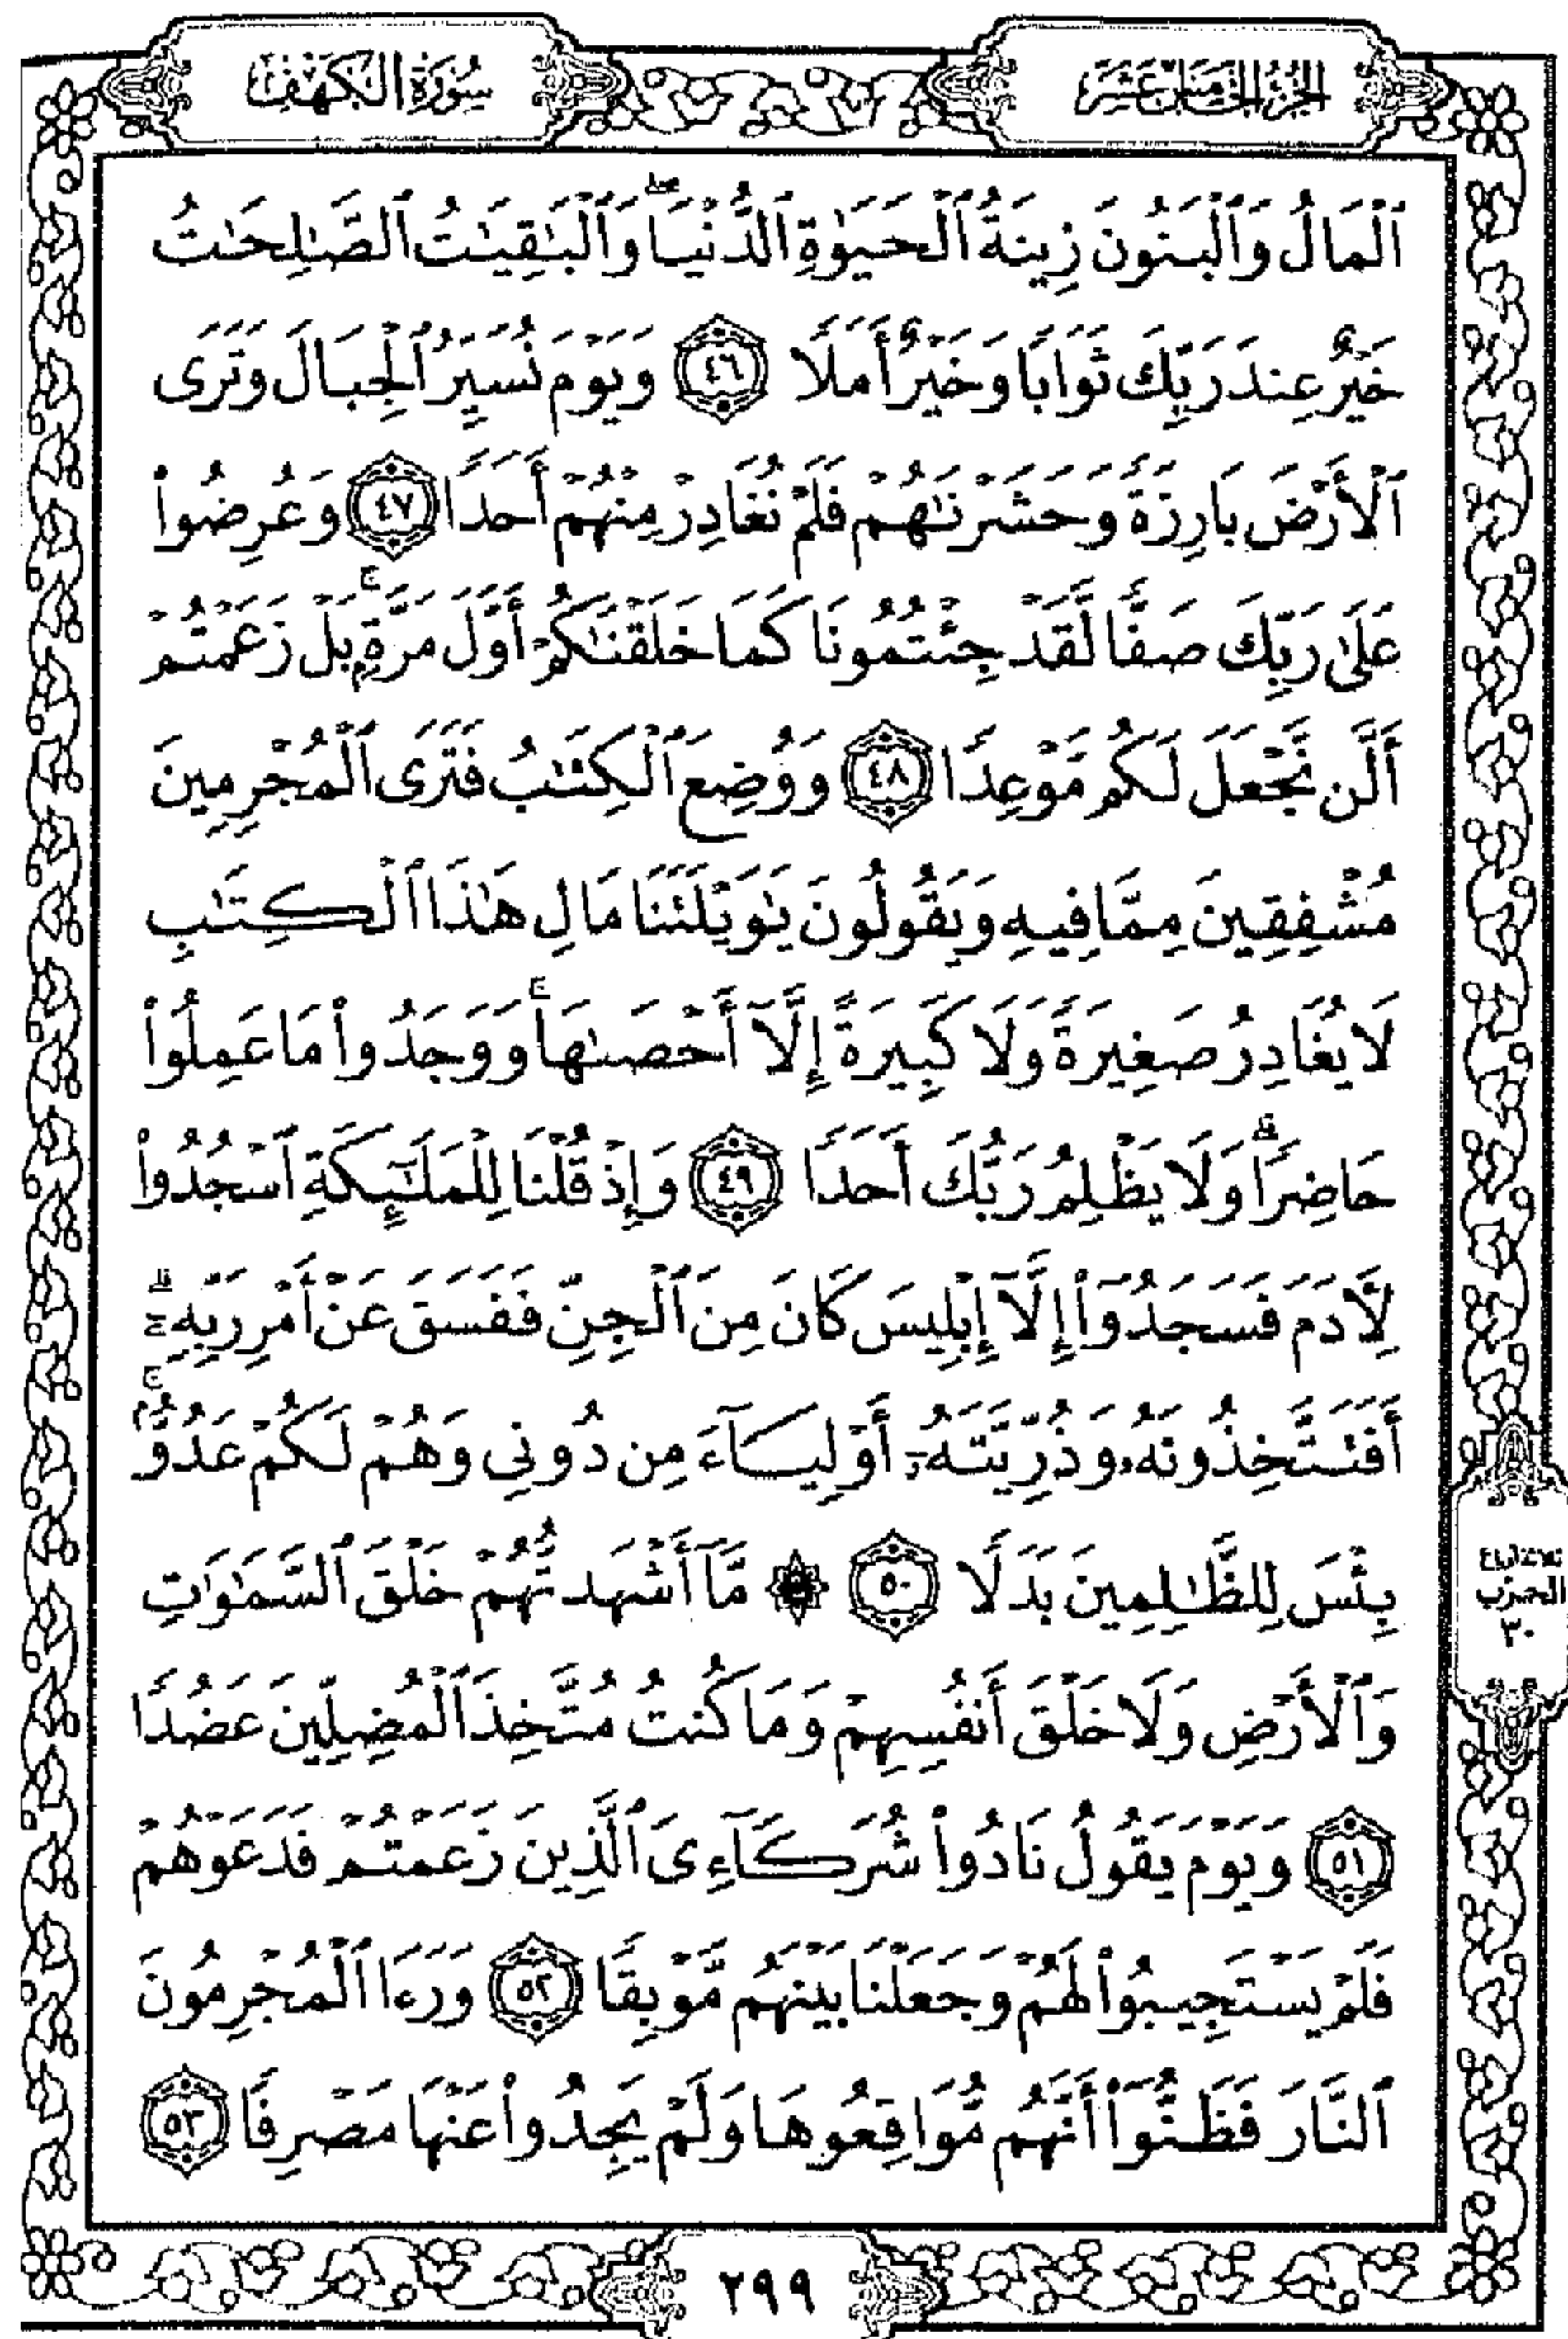 الجزء الخامس عشر
سورة الكهف
ٱلْمَالُ وَٱلْبَنُونَ زِينَةُ ٱلْحَيَوٰةِ ٱلدُّنْيَا ۖ وَٱلْبَٰقِيَٰتُ ٱلصَّٰلِحَٰتُ
خَيْرٌ عِندَ رَبِّكَ ثَوَابًا وَخَيْرٌ أَمَلًا ٤٦ وَيَوْمَ نُسَيِّرُ ٱلْجِبَالَ وَتَرَى
ٱلْأَرْضَ بَارِزَةً وَحَشَرْنَٰهُمْ فَلَمْ نُغَادِرْ مِنْهُمْ أَحَدًا ٤٧ وَعُرِضُوا۟
عَلَىٰ رَبِّكَ صَفًّا لَّقَدْ جِئْتُمُونَا كَمَا خَلَقْنَٰكُمْ أَوَّلَ مَرَّةٍۭ ۚ بَلْ زَعَمْتُمْ
أَلَّن نَّجْعَلَ لَكُم مَّوْعِدًا ٤٨ وَوُضِعَ ٱلْكِتَٰبُ فَتَرَى ٱلْمُجْرِمِينَ
مُشْفِقِينَ مِمَّا فِيهِ وَيَقُولُونَ يَٰوَيْلَتَنَا مَالِ هَٰذَا ٱلْكِتَٰبِ
لَا يُغَادِرُ صَغِيرَةً وَلَا كَبِيرَةً إِلَّآ أَحْصَىٰهَا ۚ وَوَجَدُوا۟ مَا عَمِلُوا۟
حَاضِرًا ۗ وَلَا يَظْلِمُ رَبُّكَ أَحَدًا ٤٩ وَإِذْ قُلْنَا لِلْمَلَٰٓئِكَةِ ٱسْجُدُوا۟
لِءَادَمَ فَسَجَدُوٓا۟ إِلَّآ إِبْلِيسَ كَانَ مِنَ ٱلْجِنِّ فَفَسَقَ عَنْ أَمْرِ رَبِّهِۦٓ ۗ
أَفَتَتَّخِذُونَهُۥ وَذُرِّيَّتَهُۥٓ أَوْلِيَآءَ مِن دُونِى وَهُمْ لَكُمْ عَدُوٌّۢ ۚ
بِئْسَ لِلظَّٰلِمِينَ بَدَلًا ٥٠ ۞ مَّآ أَشْهَدتُّهُمْ خَلْقَ ٱلسَّمَٰوَٰتِ
وَٱلْأَرْضِ وَلَا خَلْقَ أَنفُسِهِمْ وَمَا كُنتُ مُتَّخِذَ ٱلْمُضِلِّينَ عَضُدًا
٥١ وَيَوْمَ يَقُولُ نَادُوا۟ شُرَكَآءِىَ ٱلَّذِينَ زَعَمْتُمْ فَدَعَوْهُمْ
فَلَمْ يَسْتَجِيبُوا۟ لَهُمْ وَجَعَلْنَا بَيْنَهُم مَّوْبِقًا ٥٢ وَرَءَا ٱلْمُجْرِمُونَ
ٱلنَّارَ فَظَنُّوٓا۟ أَنَّهُم مُّوَاقِعُوهَا وَلَمْ يَجِدُوا۟ عَنْهَا مَصْرِفًا ٥٣
ثلاثة أرباع
الحزب
٣٠
٢٩٩